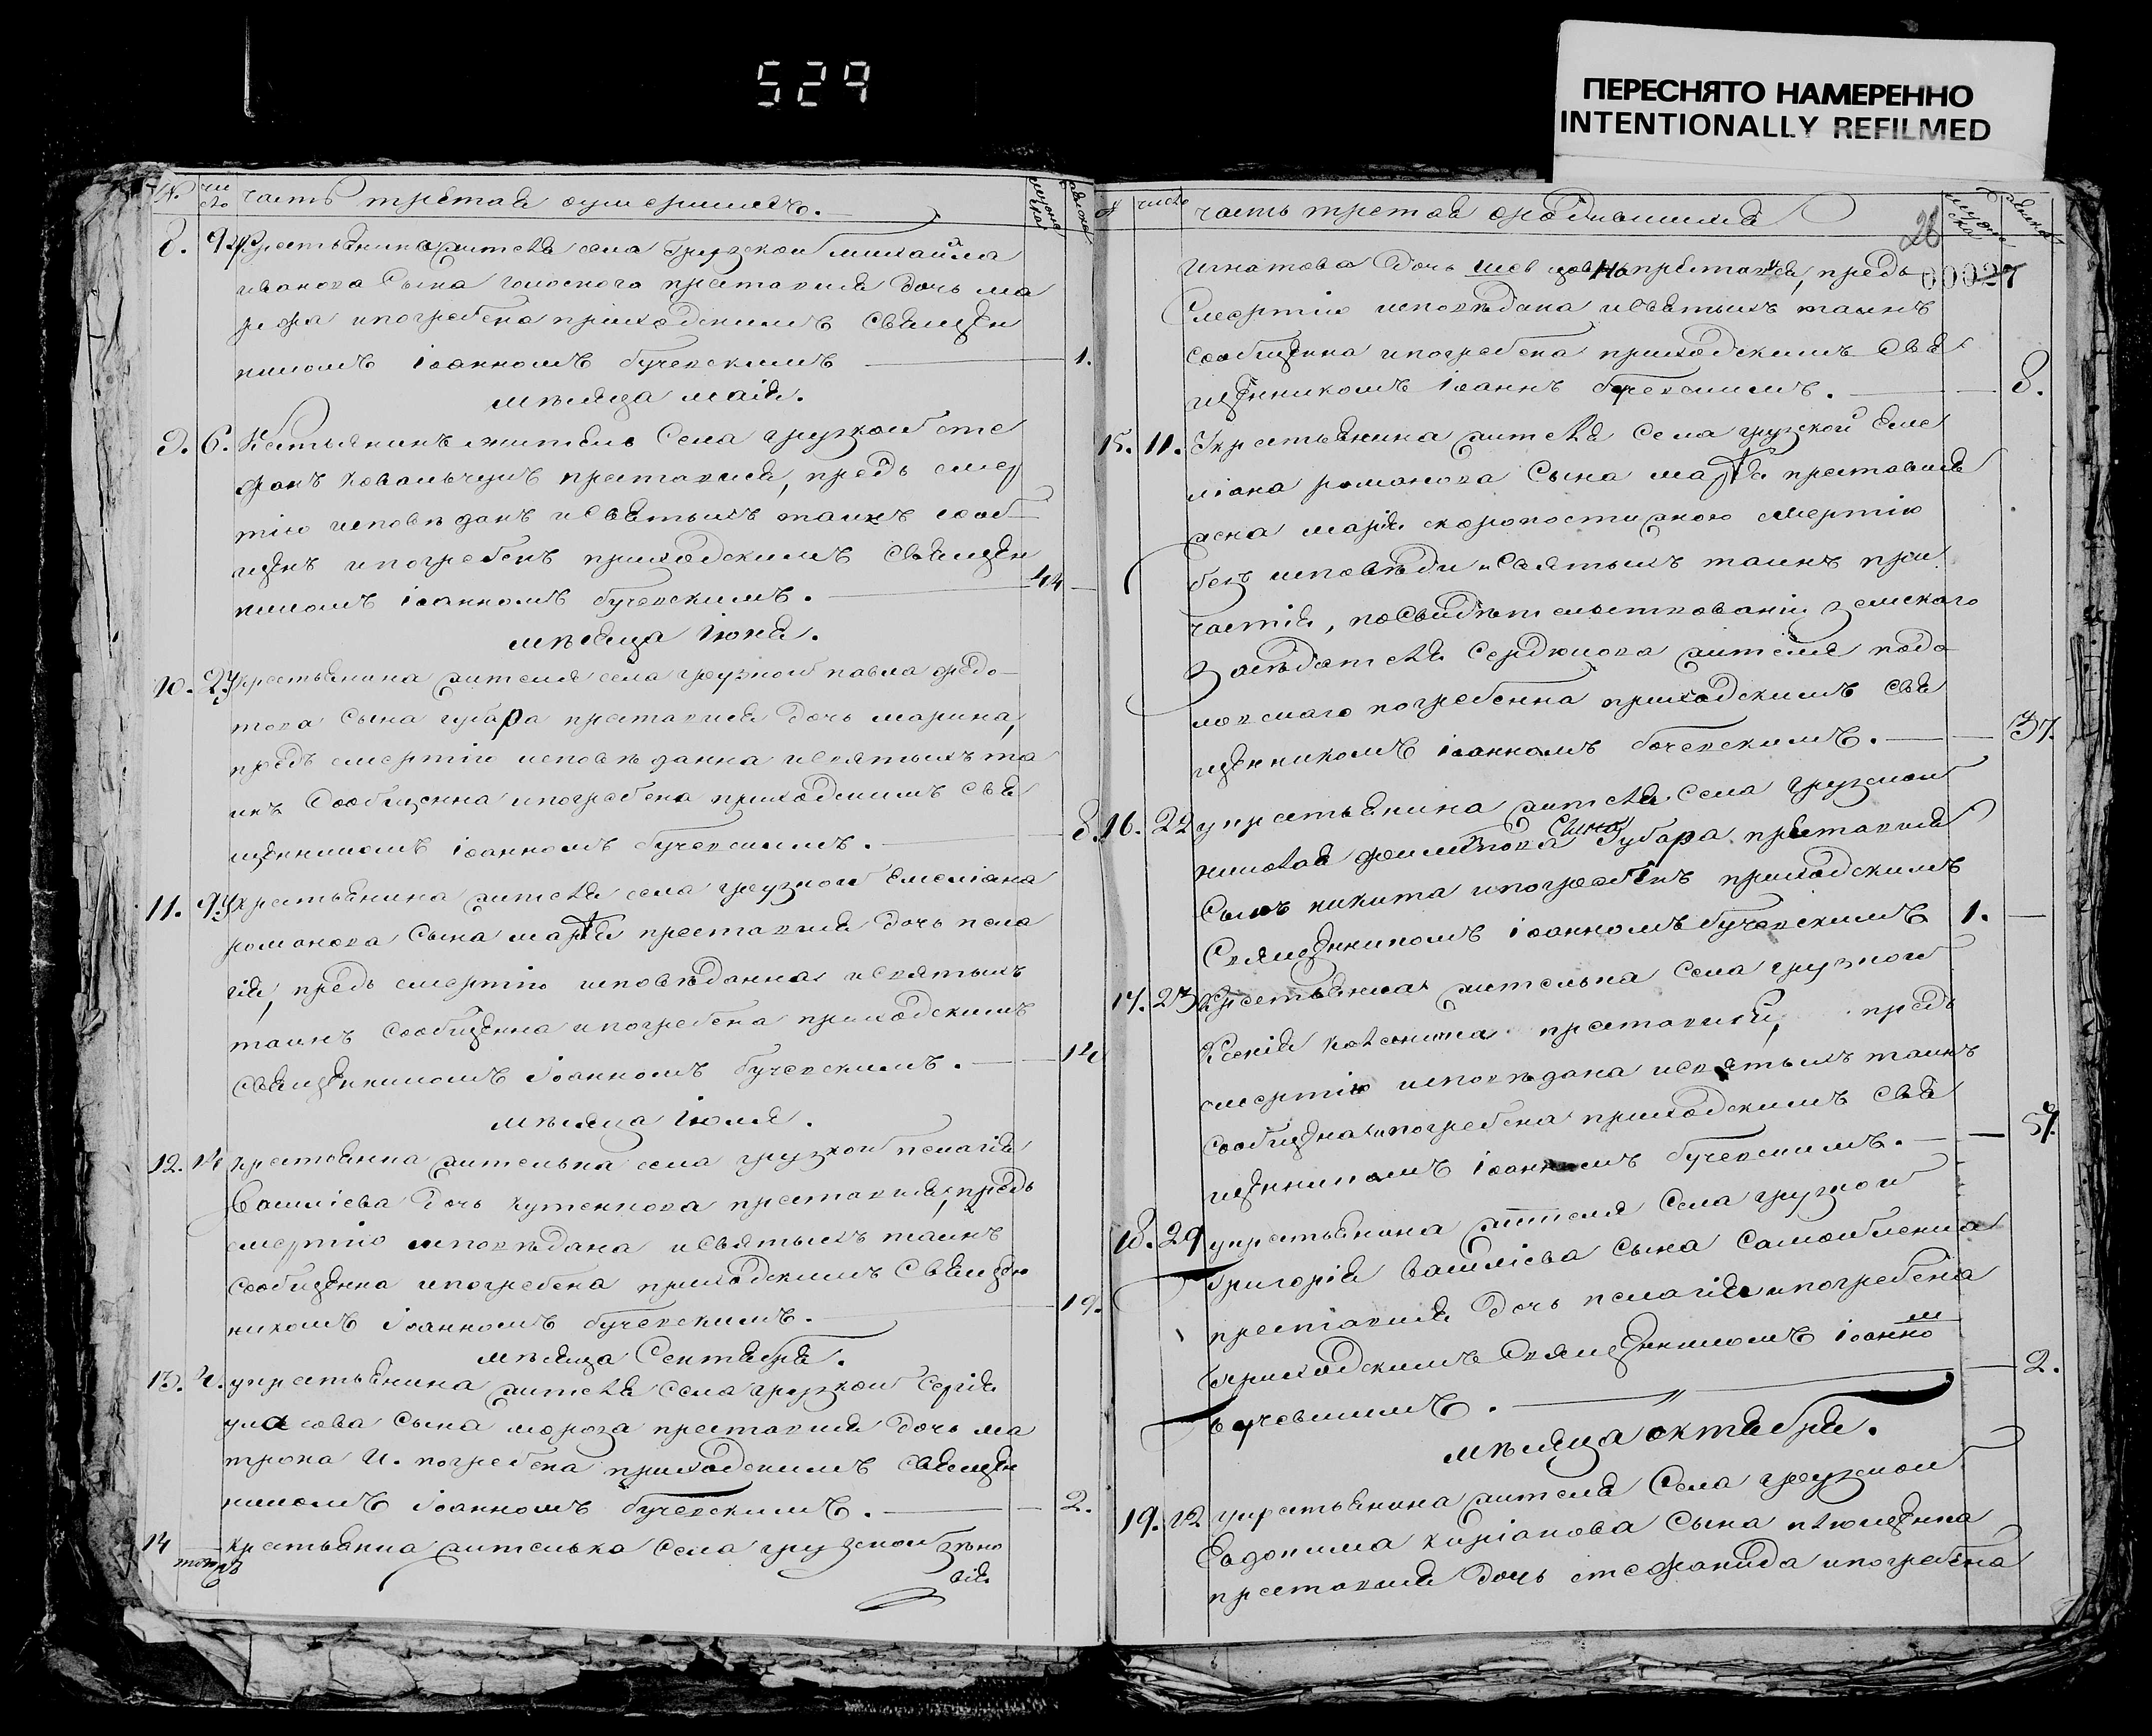 529
ПЕРЕСНЯТО НАМЕРЕННО
INTENTIONALLY REFILMED
№ число часть третая о умершихъ. мужеска женска
8. 9. У крестьянина жителя села Грузкой михаила
иванова Сына преставися дочь ма
рфа и погребена приходскимъ Священ
никомъ iоанномъ бучевскимъ 1.
мѣсяца маiя.
9. 6. Крестьянинъ житель Села грузкой сте
фанъ ковальчукъ преставися, предъ смер
тiю исповѣданъ и Святыхъ таинъ сооб
щенъ и погребенъ приходскимъ Священ
никомъ iоанномъ бучевскимъ. 44
мѣсяца iюня.
10. 2. У крестьянина жителя села грузкой павла федо
това Сына губара преставися дочь марина,
предъ смертiю исповѣданна и святыхъ та
инъ Сообщенна и погребена приходскимъ Свя
щенникомъ iоанномъ бучевскимъ. 8.
11. 9. У крестьянина жителя села грузкой Емелiана
романова Сына преставися дочь пела
гiя, предъ смертiю исповѣданна и святыхъ
таинъ Сообщенна и погребена приходскимъ
Священникомъ iоанномъ бучевскимъ.
мѣсяца iюля.
12. крестьянка жителька села грузкой пелагiя
Василiева дочь преставися, предъ
смертiю исповѣдана и Святыхъ таинъ
Сообщенна и погребена приходскимъ Священ
никомъ iоанномъ бучевскимъ. 19.
мѣсяца Сентября.
13. у крестьянина жителя Села грузкой Сергiя
власова Сына мороза преставися дочь ма
трона и погребена приходскимъ Священ
никомъ iоанномъ бучевскимъ. 2.
14 крестьянка жителька Села грузкой зѣно
вiя
№ число часть третая о умершихъ мужеска женска
26
00027
игнатова дочь преставися, предъ
Смертiю исповѣдана и Святыхъ таинъ
сообщенна и погребена приходскимъ Свя
щенникомъ iоанномъ бучевскимъ. 8.
15. 11. У крестьянина жителя Села грузкой Еме
лiана романова Сына преставися
жена марiя скоропостижною смертiю
безъ исповѣди и Святыхъ таинъ при
частiя, по Свидѣтельствованiи земского
Засѣдателя
погребенна приходскимъ Свя
щенникомъ iоанномъ бучевскимъ. 37.
16. 22 у крестьянина жителя Села грузкой
николая филипова Сына Губара преставися
Сынъ никита и погребенъ приходскимъ
Священникомъ iоанномъ бучевскимъ 1.
17. 23 Крестьянка жителька Села грузкой
Ксенiя преставися, предъ
смертiю исповѣдана и святыхъ таинъ
сообщенна и погребена приходскимъ Свя
щенникомъ iоанномъ бучевскимъ. 57.
18. 29 у крестьянина жителя Села грузкой
Григорiя Василiева Сына Самойленка
преставися дочь пелагiя и погребена
приходскимъ Священникомъ iоанномъ
бучевскимъ. 2.
мѣсяца октября.
19. 12 у крестьянина жителя Села грузкой
Евдокима кирiанова Сына
преставися дочь стефанида и погребена